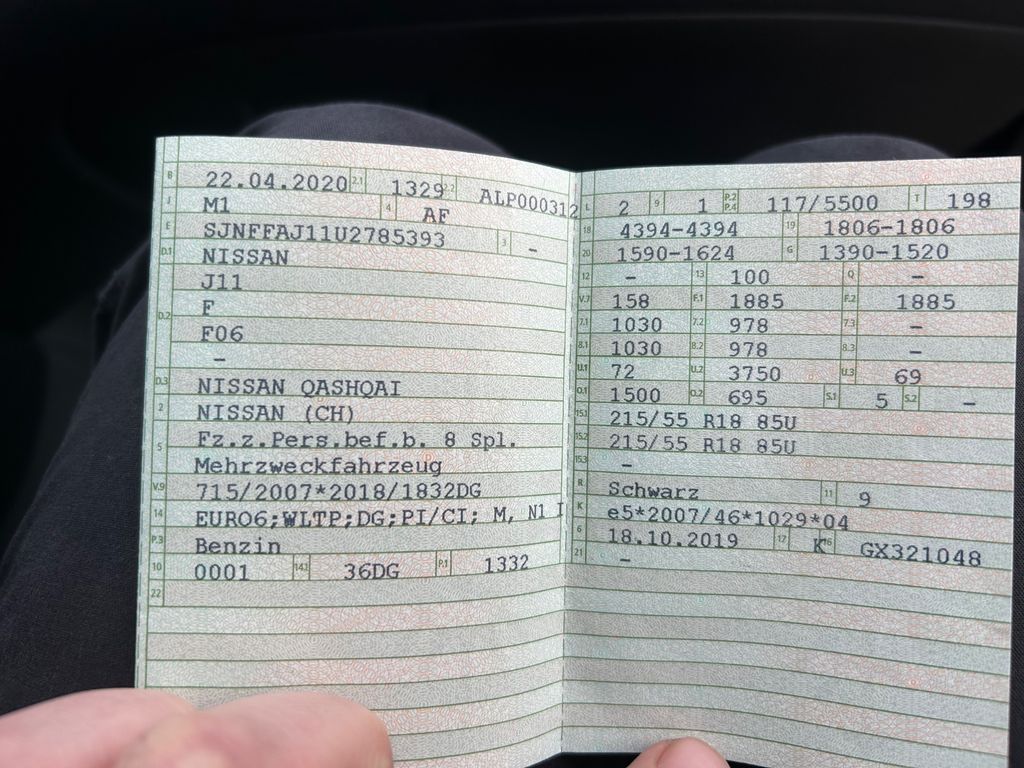 B 22.04.2020 2.1 1329 2.2 ALP000312
J M1 4 AF
E SJNFFAJ11U2785393 3 -
D.1 NISSAN
J11
D.2 F
F06
-
D.3 NISSAN QASHQAI
2 NISSAN (CH)
5 Fz.z.Pers.bef.b. 8 Spl.
Mehrzweckfahrzeug
V.9 715/2007*2018/1832DG
14 EURO6;WLTP;DG;PI/CI; M, N1 I
P.3 Benzin
10 0001 14.1 36DG P.1 1332
22
L 2 9 1 P.2 P.4 117/5500 T 198
18 4394-4394 19 1806-1806
20 1590-1624 G 1390-1520
12 - 13 100 Q -
V.7 158 F.1 1885 F.2 1885
7.1 1030 7.2 978 7.3 -
8.1 1030 8.2 978 8.3 -
U.1 72 U.2 3750 U.3 69
O.1 1500 O.2 695 S.1 5 S.2 -
15.1 215/55 R18 85U
15.2 215/55 R18 85U
15.3 -
R Schwarz 11 9
K e5*2007/46*1029*04
6 18.10.2019 17 K 16 GX321048
21 -